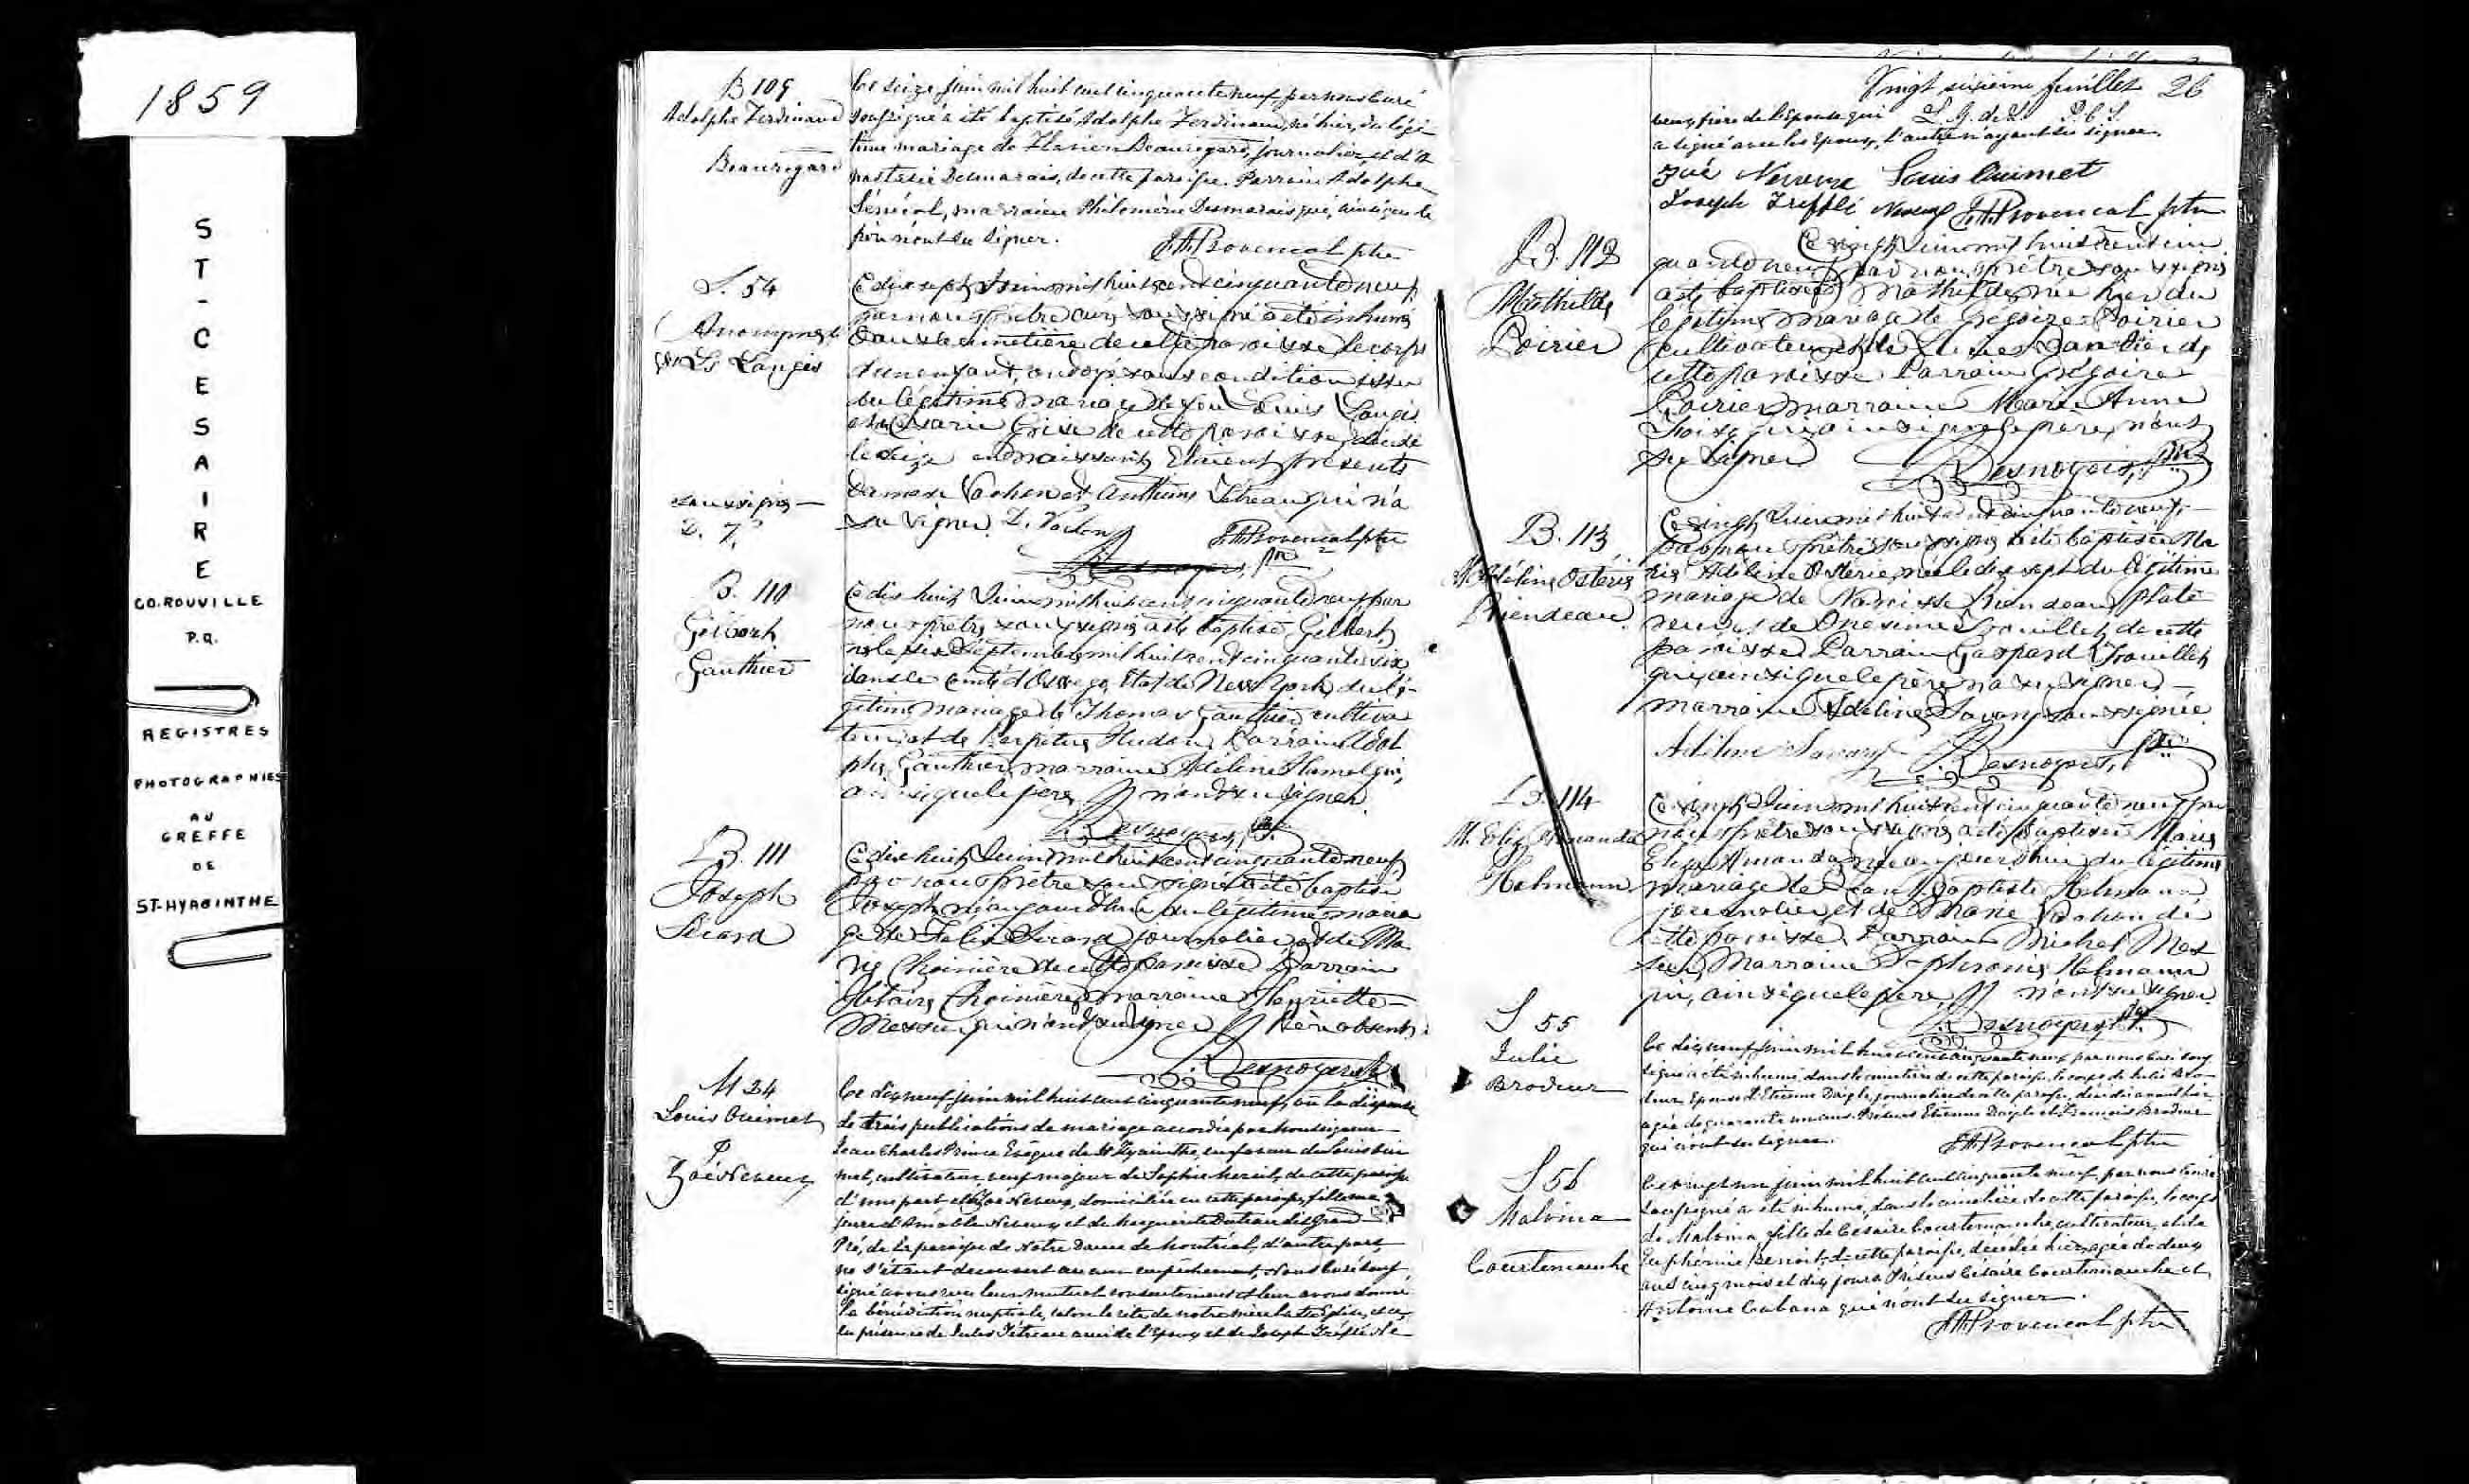 1859
ST-CESAIRE
CO. ROUVILLE
P.Q.
REGISTRES
PHOTOGRAPHIES
AU
GREFFE
DE
ST-HYACINTHE
B 109
Adolphe Ferdinand
Beauregard
Le seize juin mil huit cent cinquante neuf, par nous Curé
soussigné a été baptisé Adolphe Ferdinand, né hier, du légi-
time mariage de Flavien Beauregard, journalier, et d'
Desmarais, de cette paroisse. Parrain Adolphe
Sénécal, marraine Philomène Desmarais qui, ainsi que le
père n'ont su signer.
JAProvencal ptre
S. 54
Anonyme
Ls Langis
Ce dix sept Juin mil huit cent cinquante neuf
par nous prêtre curé soussigné a été inhumé
dans le cimetière de cette paroisse le corps
d'un enfant, ondoyé sous condition issu
du légitime mariage de feu Louis Langis
et de Marie Grise de cette paroisse, décédé
le seize en naissant, Etaient présents
Damase Vachon et Anthime Tétreau qui n'a
su signer. D. Vachon
JAProvencal ptre
soussigné
B. 110
Gilbert
Gauthier
Ce dix huit Juin mil huit cent cinquante neuf par
nous prêtre soussigné a été baptisé Gilbert
né le six Septembre mil huit cent cinquante six
dans le comté d'Oswego, Etat de New York, du lé-
gitime mariage de Thomas Gauthier cultiva
teur et de Perpétue Hudon, Parrain Adol
phe Gauthier, marraine Adeline Hamel qui,
ainsi que le père, n'ont su signer.
Desnoyers, ptre
B. 111
Joseph
Sicard
Ce dix huit Juin mil huit cent cinquante neuf
par nous prêtre soussigné a été baptisé
Joseph né aujourd'hui du légitime maria
ge de Félix Sicard journalier et de Ma
rie Choinière de cette paroisse Parrain
Hilaire Choinière, marraine Henriette
Messier qui n'ont su signer Père absent.
Desnoyers
M 24
Louis Ouimet
&
Zoé Neveux
Le dix neuf juin mil huit cent cinquante neuf, vu la dispense
de trois publications de mariage accordée par Monseigneur
Jean Charles Prince Evêque de St Hyacinthe, en faveur de Louis Oui
met, cultivateur, veuf majeur de Sophie, de cette paroisse
d'une part, et Zoé Neveux, domiciliée en cette paroisse, fille ma
jeure d'Amable Neveux et de Marguerite dit Grand
Pré, de la paroisse de Notre Dame de Montréal, d'autre part,
ne s'étant découvert aucun empêchement, Nous Curé sous
signé avons reçu leur mutuel consentement et leur avons donné
la bénédiction nuptiale, selon le rite de notre mère la Ste Eglise, et ce,
en présence de Jules Tétreau ami de l'Epoux et de Joseph Trefflé Ne
Vingt sixième feuillet 26
veux, frère de l'Epouse qui
a signé avec les Epoux, l'autre n'ayant su signer.
Zoé Neveux Louis Ouimet
Joseph Trefflé Neveux JAProvencal ptre
B. 112
Mathilde
Poirier
Ce vingt Juin mil huit cent cin
quante neuf par nous prêtre soussigné
a été baptisée Mathilde, née hier du
légitime mariage de Grégoire Poirier
cultivateur et de de
cette paroisse Parrain Grégoire
Poirier, marraine Marie Anne
qui ainsi que le père, n'ont
su signer
Desnoyers, ptre
B. 113
M. Adéline Ostérie
Riendeau
Ce vingt Juin mil huit cent cinquante neuf
par nous prêtre soussigné a été baptisée Ma
rie Adéline Ostérie, née le dix sept du légitime
mariage de Narcisse Riendeau
et de Onésime Brouillet de cette
paroisse Parrain Gaspard Brouillet
qui, ainsi que le père n'a su signer
marraine Adeline Savary soussignée
Adéline Savary Desnoyers, ptre
B. 114
M. Eliza Amanda
Helmann
Ce vingt Juin mil huit cent cinquante neuf par
nous prêtre soussigné a été baptisée Marie
Eliza Amanda, née aujourd'hui du légitime
mariage de Jean Baptiste Helmann
journalier et de Marie Vachon de
cette paroisse, Parrain Michel
Marraine Sophronie Helmann
qui, ainsi que le père, n'ont su signer.
Desnoyers, ptre
S 55
Julie
Brodeur
Le dix neuf juin mil huit cent cinquante neuf, par nous Curé sous
signé a été inhumé, dans le cimetière de cette paroisse, le corps de Julie Bro-
deur Epouse d'Etienne Daigle, journalier de cette paroisse, décédée avant hier
agée de quarante un ans. Présens Etienne Daigle et François Brodeur
qui n'ont su signer.
JAProvencal ptre
S 56
Malvina
Courtemanche
Le vingt un juin mil huit cent cinquante neuf, par nous Curé
soussigné a été inhumé, dans le cimetière de cette paroisse, le corps
de Malvina, fille de Césaire Courtemanche, cultivateur, et de
Euphémie Benoit, de cette paroisse, décédée hier, agée de deux
ans cinq mois et dix jours. Présens Césaire Courtemanche et
Antoine Cabana qui n'ont su signer.
JAProvencal ptre